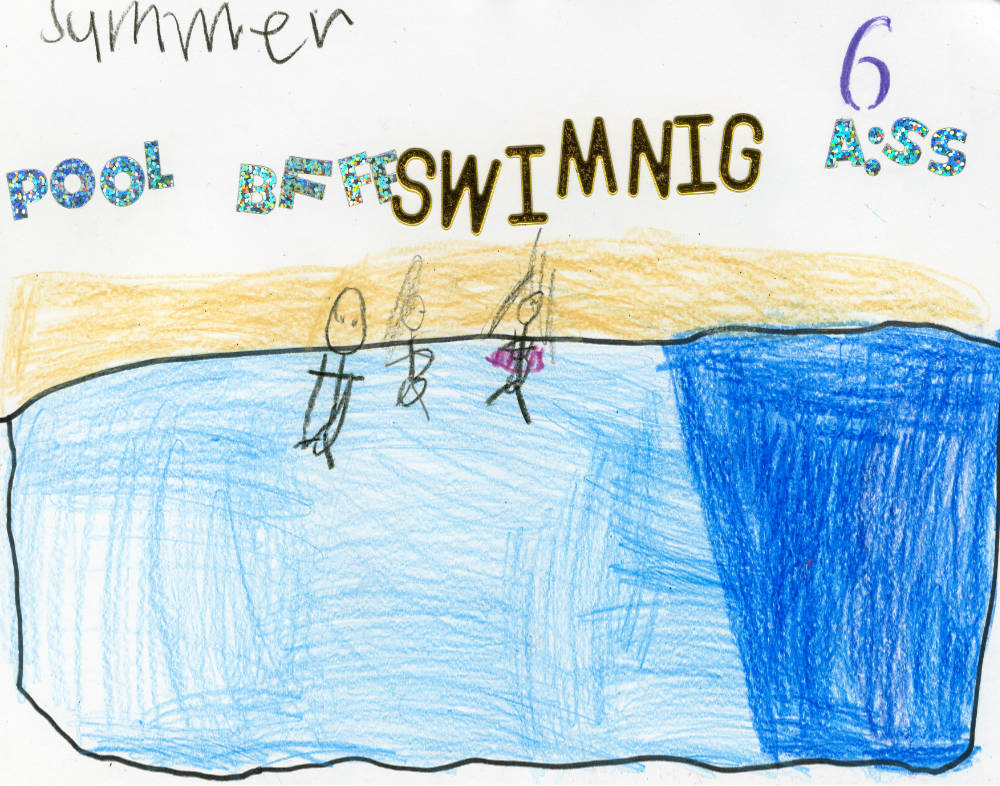 Summer
6
POOL BF FF SWIMNIG A:SS